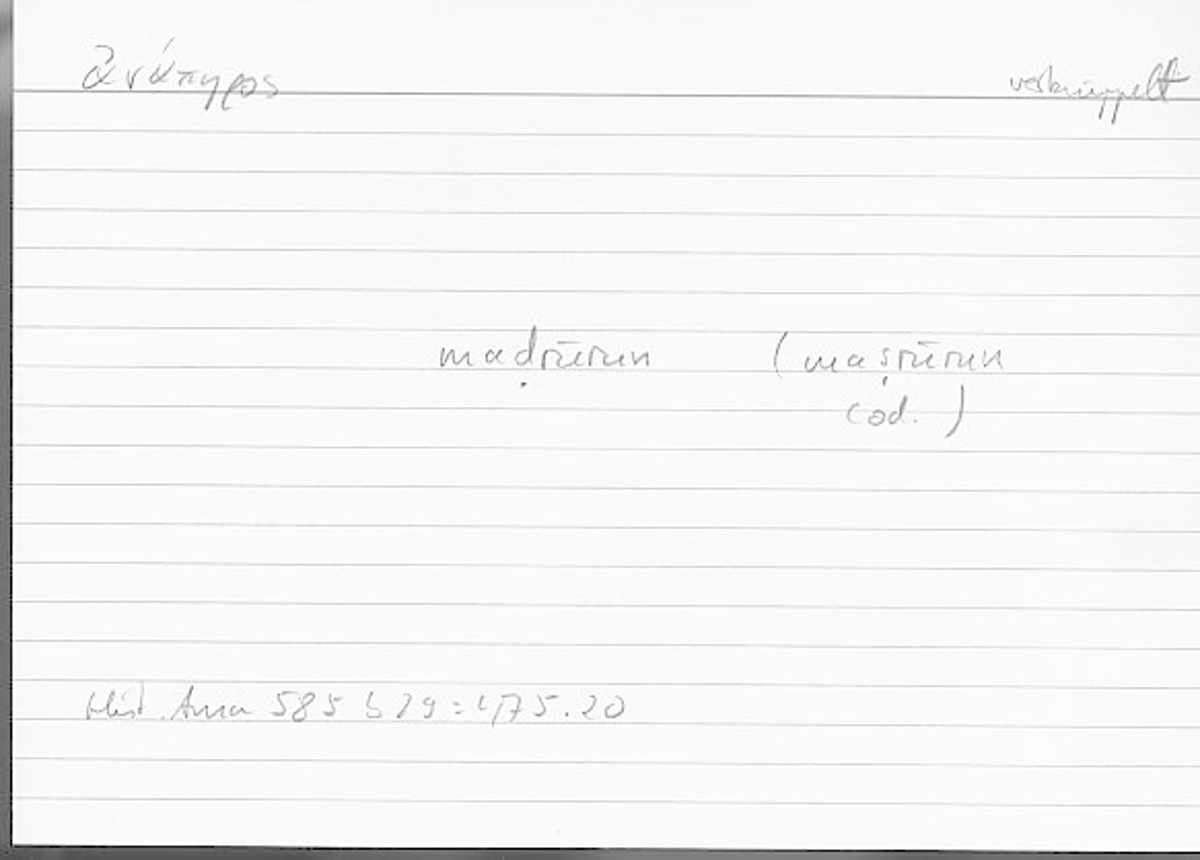 ἀνάπηρος verkrüppelt
maḍrūrun (maṣrūrun
cod.)
Hist. Anim 585 b 29 = 475.20